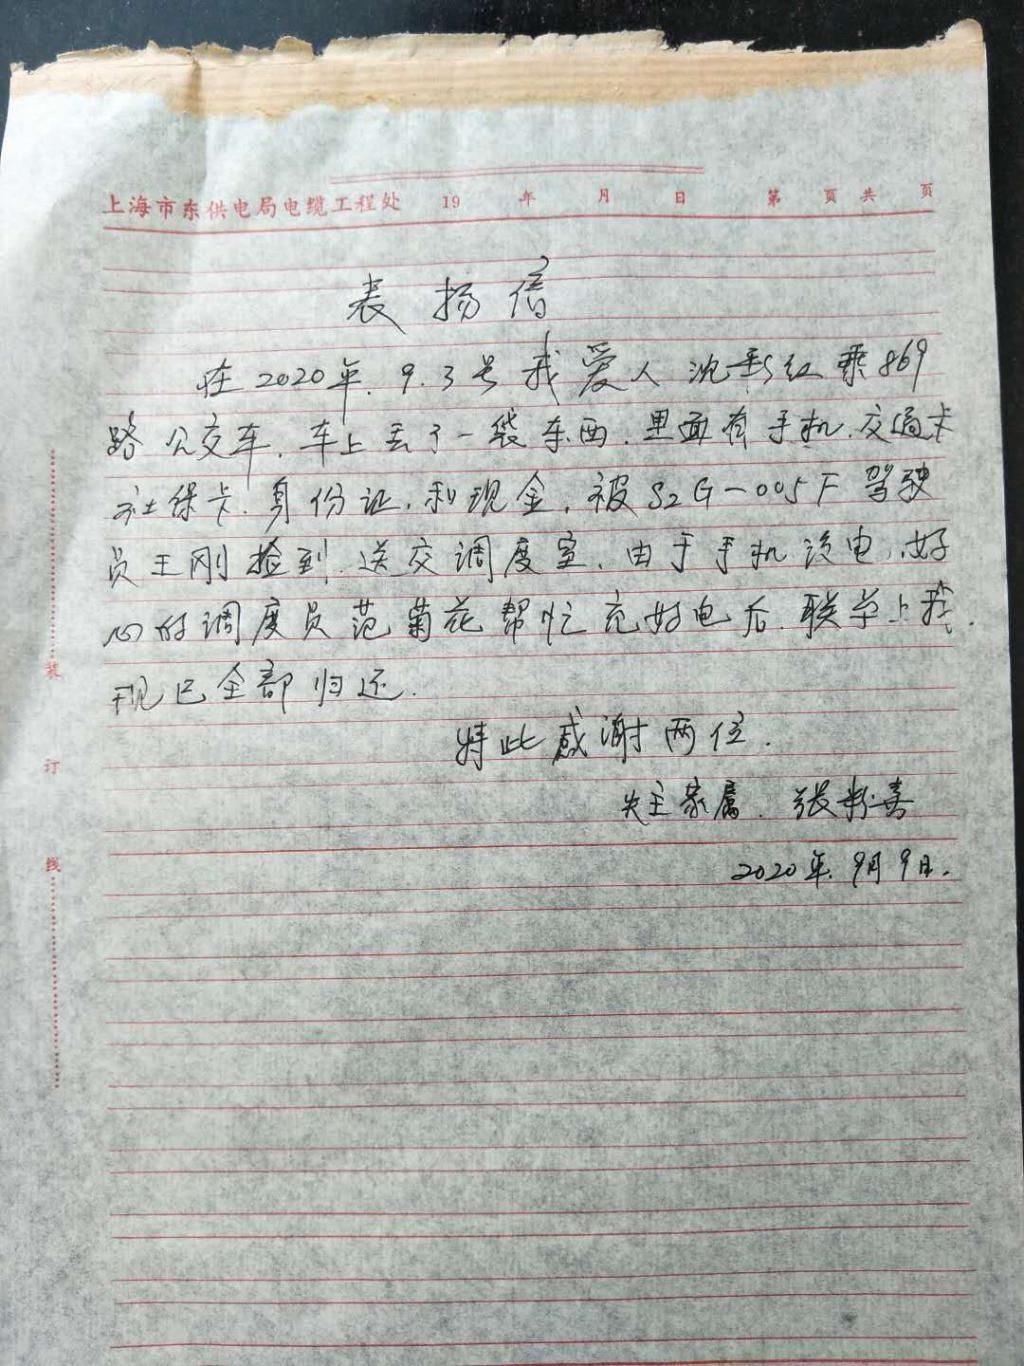 上海市东供电局电缆工程处 19 年 月 日 第 页 共 页
表扬信
在2020年.9.3号我爱人沈彩红乘869
路公交车.车上丢了一袋东西.里面有手机.交通卡
社保卡.身份证.和现金.被S2G-005F驾驶
员王刚捡到.送交调度室.由于手机没电.好
心的调度员范菊花帮忙充好电后.联系上我.
现已全部归还.
特此感谢两位.
失主家属.张
2020年.9月9日.
装
订
线